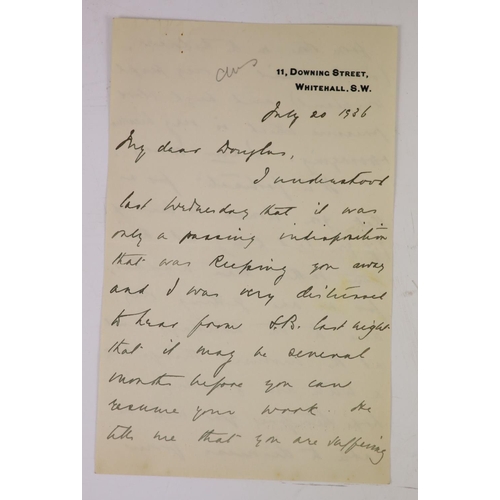 ans
11, Downing Street,
Whitehall, S.W.
July 20 1936
My dear Douglas,
I understood
last Wednesday that it was
only a passing indisposition
that was keeping you away
and I was very distressed
to hear from S.B. last night
that it may be several
months before you can
resume your work. He
tells me that you are suffering